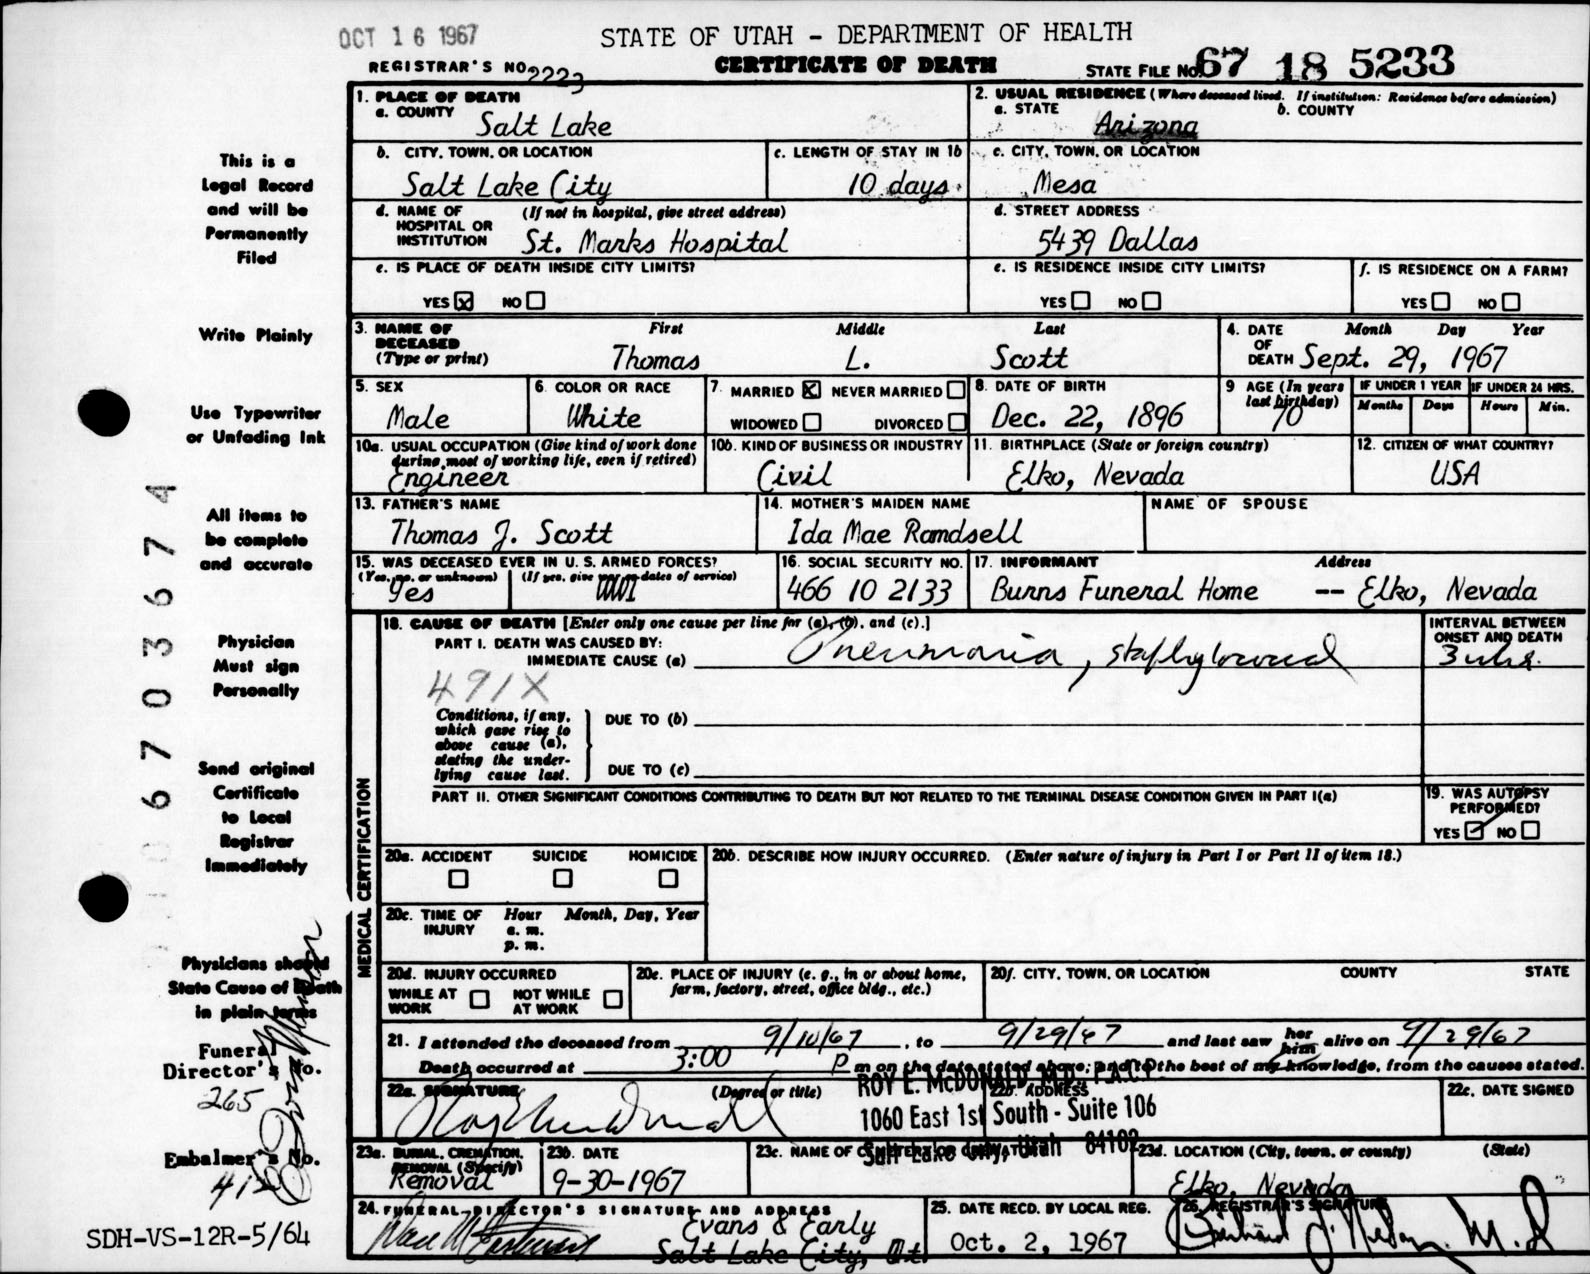 OCT 16 1967
STATE OF UTAH - DEPARTMENT OF HEALTH
REGISTRAR'S NO. 2223
CERTIFICATE OF DEATH
STATE FILE NO. 67 18 5233
This is a
Legal Record
and will be
Permanently
Filed
Write Plainly
Use Typewriter
or Unfading Ink
All items to
be complete
and accurate
Physician
Must sign
Personally
Send original
Certificate
to Local
Registrar
Immediately
Physicians should
State Cause of Death
in plain terms
Funeral
Director's No.
265
Embalmer's No.
412
SDH-VS-12R-5/64
0670 3674
1. PLACE OF DEATH
a. COUNTY
Salt Lake
2. USUAL RESIDENCE (Where deceased lived. If institution: Residence before admission)
a. STATE b. COUNTY
Arizona
b. CITY, TOWN, OR LOCATION
Salt Lake City
c. LENGTH OF STAY IN 1b
10 days
c. CITY, TOWN, OR LOCATION
Mesa
d. NAME OF HOSPITAL OR INSTITUTION (If not in hospital, give street address)
St. Marks Hospital
d. STREET ADDRESS
5439 Dallas
e. IS PLACE OF DEATH INSIDE CITY LIMITS?
YES X NO
e. IS RESIDENCE INSIDE CITY LIMITS?
YES NO
f. IS RESIDENCE ON A FARM?
YES NO
3. NAME OF DECEASED (Type or print)
First Middle Last
Thomas L. Scott
4. DATE OF DEATH
Month Day Year
Sept. 29, 1967
5. SEX
Male
6. COLOR OR RACE
White
7. MARRIED X NEVER MARRIED
WIDOWED DIVORCED
8. DATE OF BIRTH
Dec. 22, 1896
9 AGE (In years last birthday)
70
IF UNDER 1 YEAR
Months Days
IF UNDER 24 HRS.
Hours Min.
10a. USUAL OCCUPATION (Give kind of work done during most of working life, even if retired)
Engineer
10b. KIND OF BUSINESS OR INDUSTRY
Civil
11. BIRTHPLACE (State or foreign country)
Elko, Nevada
12. CITIZEN OF WHAT COUNTRY?
USA
13. FATHER'S NAME
Thomas J. Scott
14. MOTHER'S MAIDEN NAME
Ida Mae Ramdsell
NAME OF SPOUSE
15. WAS DECEASED EVER IN U. S. ARMED FORCES?
(Yes, no, or unknown) (If yes, give war or dates of service)
Yes WWI
16. SOCIAL SECURITY NO.
466 10 2133
17. INFORMANT Address
Burns Funeral Home -- Elko, Nevada
18. CAUSE OF DEATH [Enter only one cause per line for (a), (b), and (c).]
PART I. DEATH WAS CAUSED BY:
IMMEDIATE CAUSE (a) Pneumonia,
491X
INTERVAL BETWEEN ONSET AND DEATH
3 wks.
Conditions, if any, which gave rise to above cause (a), stating the underlying cause last.
DUE TO (b)
DUE TO (c)
PART II. OTHER SIGNIFICANT CONDITIONS CONTRIBUTING TO DEATH BUT NOT RELATED TO THE TERMINAL DISEASE CONDITION GIVEN IN PART I(a)
19. WAS AUTOPSY PERFORMED?
YES NO
MEDICAL CERTIFICATION
20a. ACCIDENT SUICIDE HOMICIDE
20b. DESCRIBE HOW INJURY OCCURRED. (Enter nature of injury in Part I or Part II of item 18.)
20c. TIME OF INJURY Hour Month, Day, Year
a. m.
p. m.
20d. INJURY OCCURRED
WHILE AT WORK NOT WHILE AT WORK
20e. PLACE OF INJURY (e. g., in or about home, farm, factory, street, office bldg., etc.)
20f. CITY, TOWN, OR LOCATION COUNTY STATE
21. I attended the deceased from 9/10/67, to 9/29/67 and last saw her him alive on 9/29/67
Death occurred at 3:00 p m on the date stated above; and to the best of my knowledge, from the causes stated.
22a. SIGNATURE (Degree or title)
22b. ADDRESS
ROY E. McDONALD, M.D., F.A.C.P.
1060 East 1st South - Suite 106
Salt Lake City, Utah 84102
22c. DATE SIGNED
23a. BURIAL, CREMATION, REMOVAL (Specify)
Removal
23b. DATE
9-30-1967
23c. NAME OF CEMETERY OR CREMATORY
23d. LOCATION (City, town, or county) (State)
Elko, Nevada
24. FUNERAL DIRECTOR'S SIGNATURE AND ADDRESS
Evans & Early
Salt Lake City, Ut.
25. DATE RECD. BY LOCAL REG.
Oct. 2, 1967
26. REGISTRAR'S SIGNATURE